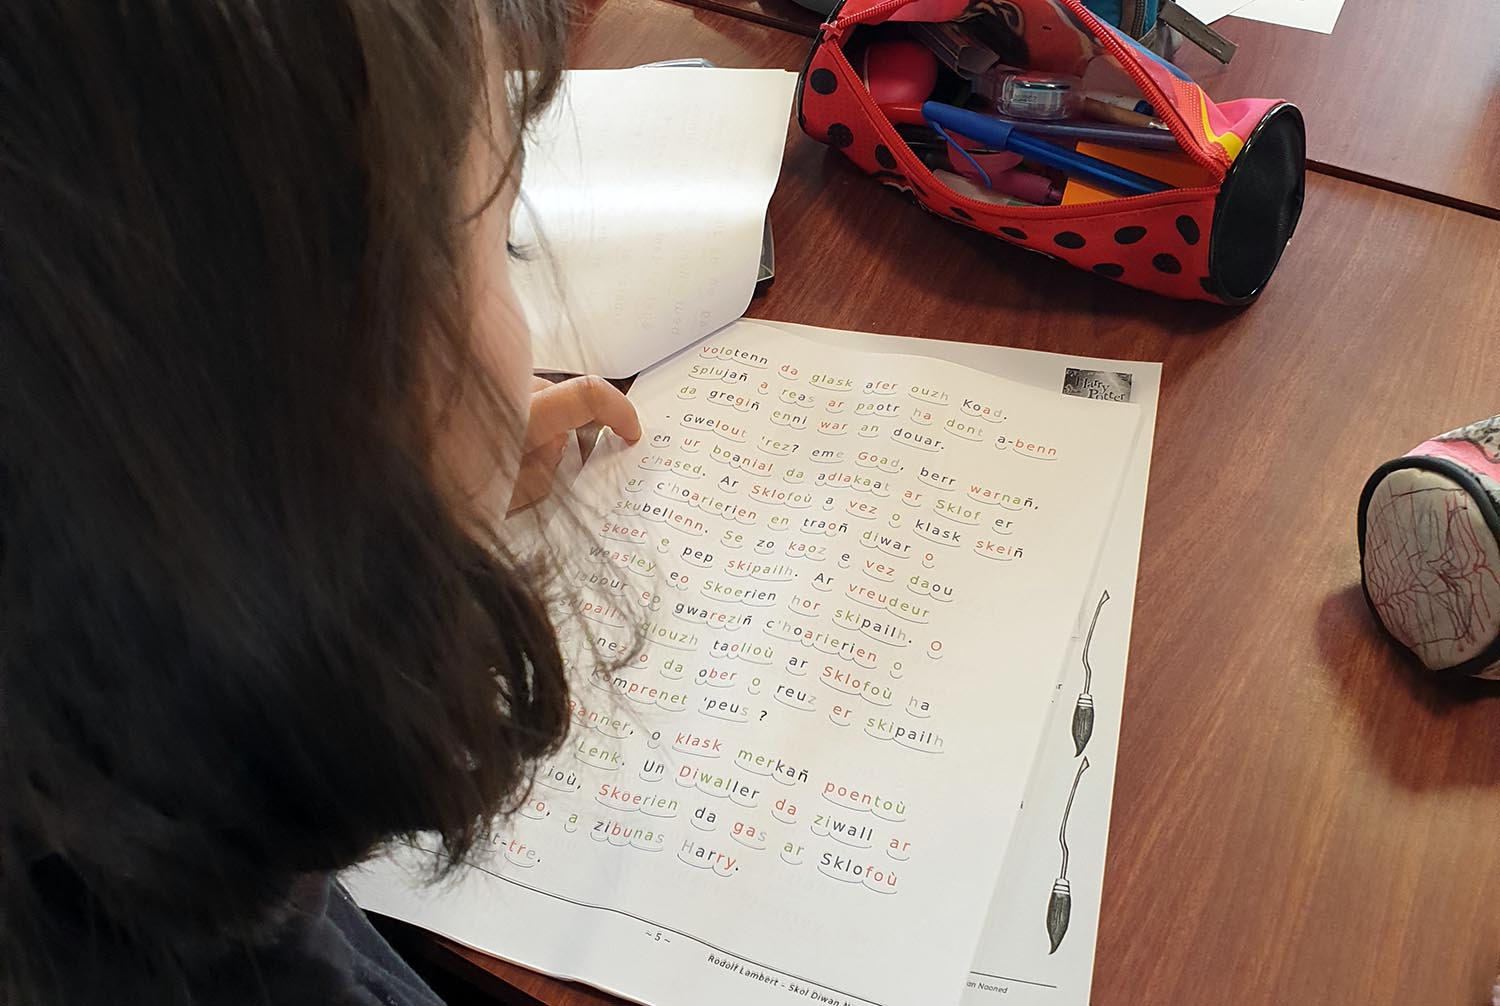 Harry
Potter
volotenn da glask afer ouzh Koad.
Splujañ a reas ar paotr ha dont a-benn
da gregiñ enni war an douar.
- Gwelout 'rez? eme Goad, berr warnañ,
en ur boanial da adlakaat ar Sklof er
c'hased. Ar Sklofoù a vez o klask skeiñ
ar c'hoarierien en traoñ diwar o
skubellenn. Se zo kaoz e vez daou
Skoer e pep skipailh. Ar vreudeur
Weasley eo Skoerien hor skipailh. O
labour eo gwareziñ c'hoarierien o
skipailh diouzh taolioù ar Sklofoù ha
o da ober o reuz er skipailh
Komprenet 'peus ?
Banner, o klask merkañ poentoù
Lenk. Un Diwaller da ziwall ar
Skoerien da gas ar Sklofoù
a zibunas Harry.
~ 5 ~
Rodolf Lambert - Skol Diwan
an Naoned